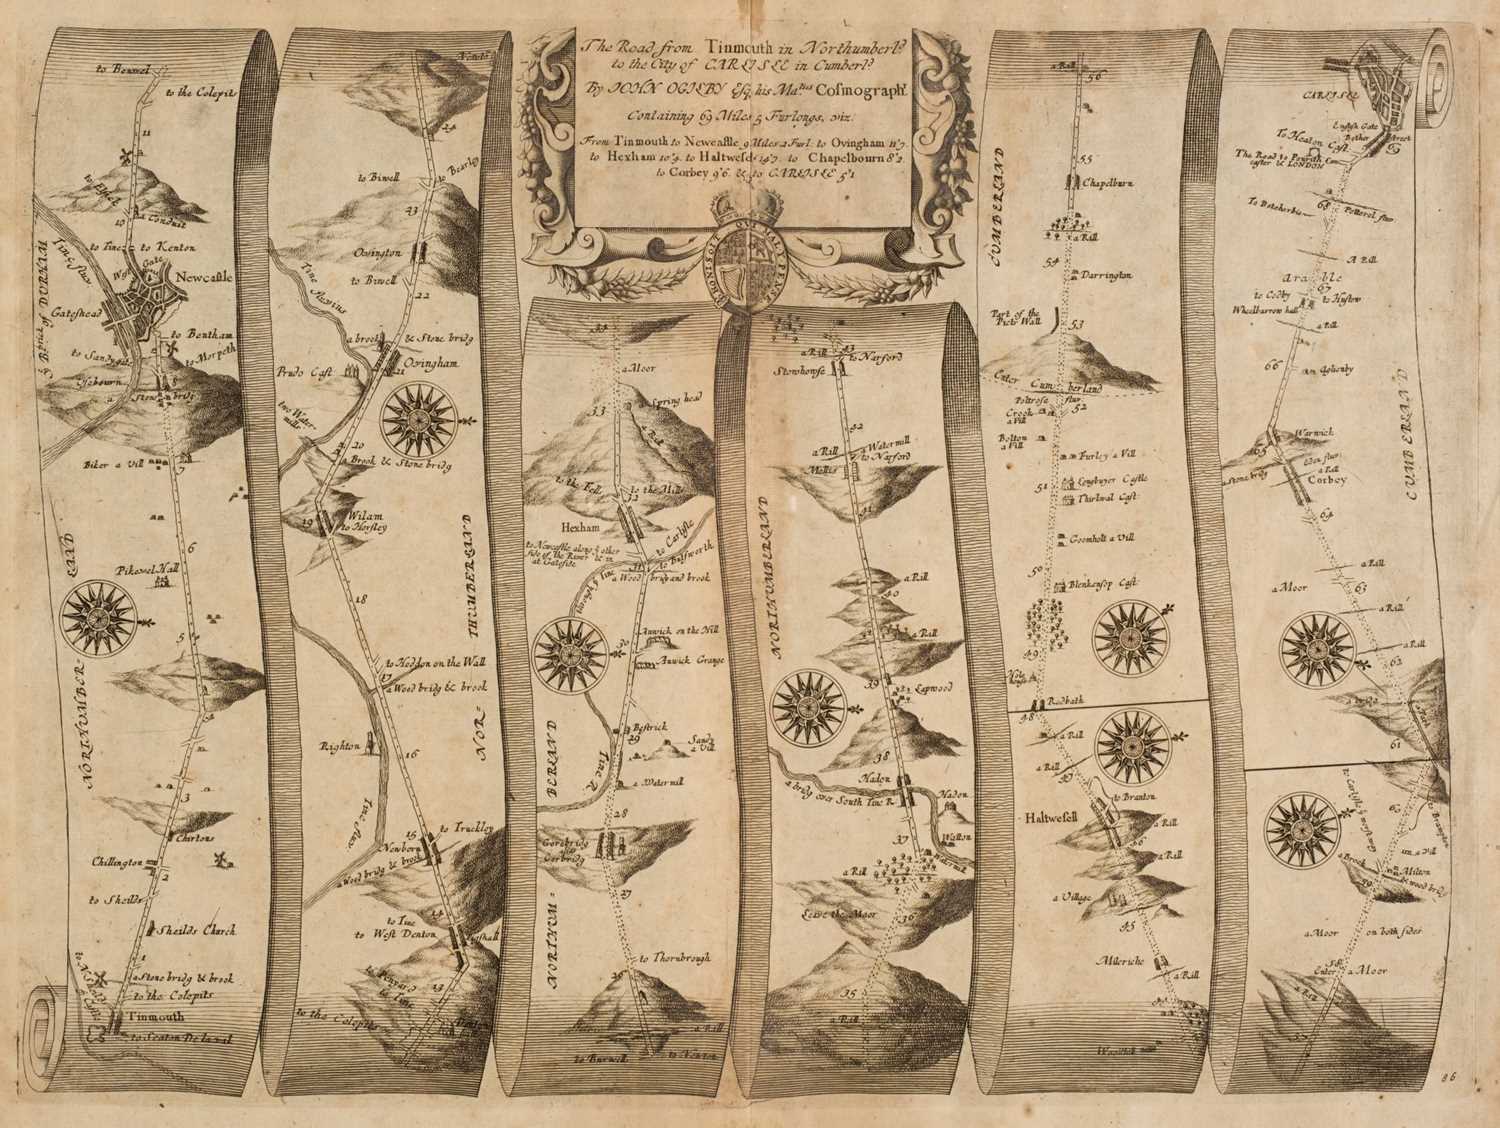 The Road from Tinmouth in Northumberl.d
to the City of CARLISLE in Cumberl.d
By JOHN OGILBY Esq. his Ma.ties Cosmograph.r
Containing 69 Miles 5 Furlongs, viz.
From Tinmouth to Newcastle 9 Miles 2 Furl. to Ovingham 11'7
to Hexham 10'4. to Haltwesel 14'7. to Chapelbourn 8'2
to Corbey 9'6. & to CARLISLE 5'1
HONI SOIT QUI MAL Y PENSE
to Benwel
to the Colepits
11
to Elswick
10
a Conduit
to Tine
to Kenton
West Gate
Newcastle
Tine fluv
Gateshead
to Bentham
to Sandgate
to Morpeth
8
a Stone bridg
Biker a Vill
7
6
Pikewel Hall
5
NORTHUMBER-
LAND
3
Chirtons
Chillington
2
to Sheilds
Sheilds Church
1
a Stone bridg & brook
to the Colepits
Tinmouth
to Seaton De laval
Newton
24
to Biwell
to Bearley
23
Ovington
to Biwell
22
Tine fluvius
a brook
& Stone bridg
Ovingham
21
Prudo Cast
two Water-
mills
20
a Brook & Stone bridg
Wilam
19
to Horsley
18
to Heddon on the Wall
17
a Wood bridg & brook
Righton
16
NOR-
THUMBERLAND
Tine fluv.
15
to Truckley
Newborn
a Wood bridg & brook
14
to Tine
to West Denton
13
to the Colepits
34
a Moor
33
a Spring head
a Rill
to the Fell
to the Mills
32
Hexham
to Carlisle
to Newcastle along y other
side of the River & in
at Gateside
31
to Busworth
Wood bridg and brook
through Tine
30
Anwick on the Hill
Anwick Grange
Bestrick
29
Sandy
a Vill
Tine R.
a Watermill
28
Gorbridg
27
to Thornbrough
26
a Rill
to Burwell
to Newton
NORTHUM-
BERLAND
43
a Rill
to Narford
Stowhowse
42
Watermill
a Rill
to Narford
Mellis
41
a Rill
40
a Rill
39
Lapwood
38
Hadon
a bridg over South Tine R.
Hadon
Walton
37
Watermill
a Rill
Leave the Moor
36
35
a Rill
NORTHUMBERLAND
a Rill
56
55
Chapelburn
a Rill
54
Darrington
Part of the
Picts Wall
53
Enter Cumberland
Poltrose fluv.
52
Crook
a Vill
Bolton
a Vill
Furley a Vill
51
Longbuyer Castle
Thirlwal Cast.
Goomholt a Vill
50
Blenkensop Cast.
49
Redpath
48
a Rill
a Rill
to Branton
Haltwesell
a Rill
46
a Rill
a Village
45
Mileriche
a Rill
CUMBERLAND
CARLISLE
English Gate
Bother
Street
69
To Heaton Cast.
The Road to Penrith
caster & LONDON
68
Petterel fluv
To Betcherbie
A Rill
Arable
67
to Coöby
to Huslow
Wheelbarrow hall
a Rill
66
Aglionby
Warwick
65
Eden fluv.
a Stone bridg
a Rill
Corbey
64
a Rill
63
a Moor
a Rill
a Rill
62
a bridg
61
60
a Vill
a Brook
Milton
59
& wood bridg
a Moor
on both sides
58
Enter
a Moor
a Rill
CUMBERLAND
86